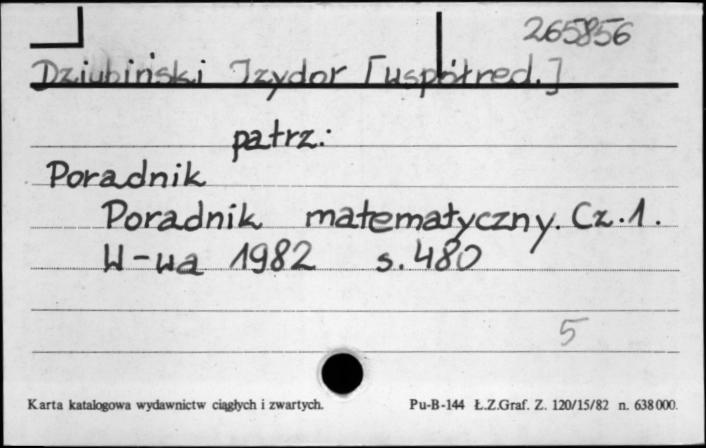 265856
Dziubiński Izydor [współred.]
patrz:
Poradnik
Poradnik matematyczny. Cz. 1.
W-wa 1982 s. 480
5
Karta katalogowa wydawnictw ciągłych i zwartych. Pu-B-144 Ł.Z.Graf. Z. 120/15/82 n. 638000.